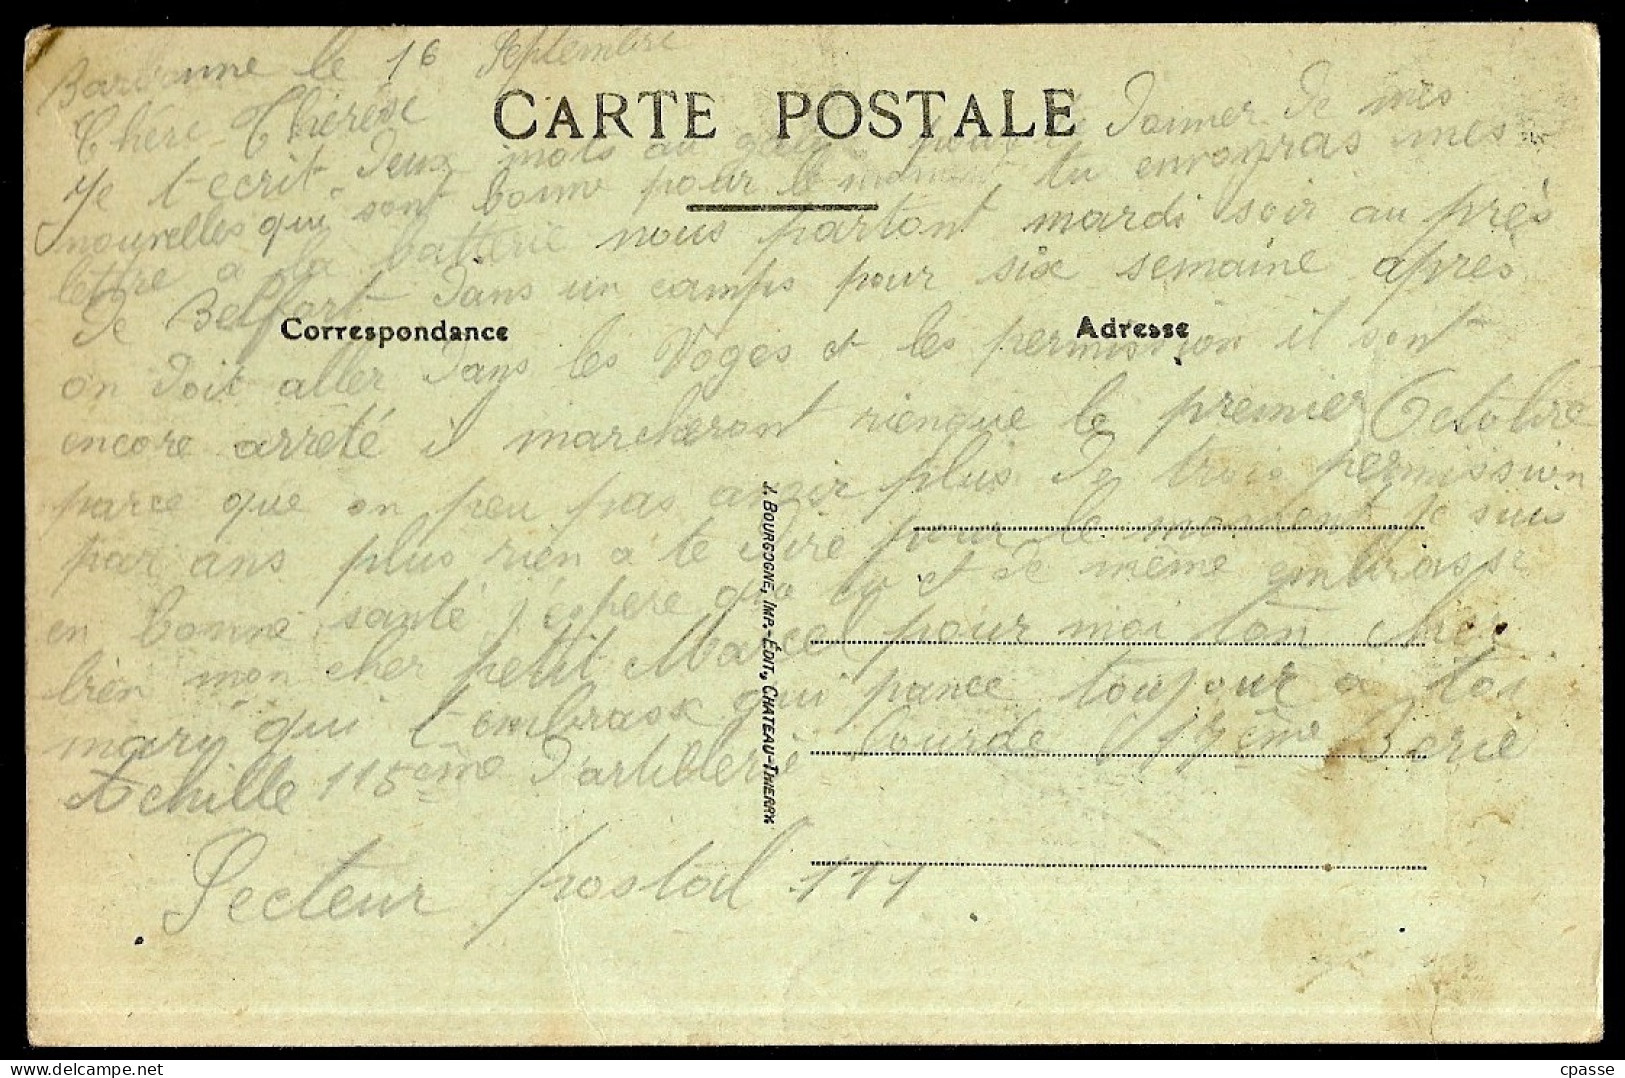 Barbonne le 16 Septembre
CARTE POSTALE
Chere Thérèse
Je t'ecrit deux mots au galop pour te donner de mes
nouvelles qui sont bonne pour le moment tu envoyras mes
lettre a la batterie nous partont mardi soir au près
de Belfort dans un camps pour six semaine après
Correspondance
Adresse
on doit aller dans les Voges et les permission il sont
encore arrêté il marcheront rienque le premier Octobre
parce que on peu pas avoir plus de trois permission
par ans plus rien a te dire pour le moment je suis
en bonne santé j'espere que tu et de même embrasse
bien mon cher petit Marcel pour moi ton cher
mary qui t'embrasse qui pance toujour a toi
Achille 115ème d'artillerie Lourde 17ème Berie
Secteur postal 111
J. BOURGOGNE, IMP.-ÉDIT., CHATEAU-THIERRY
cpasse